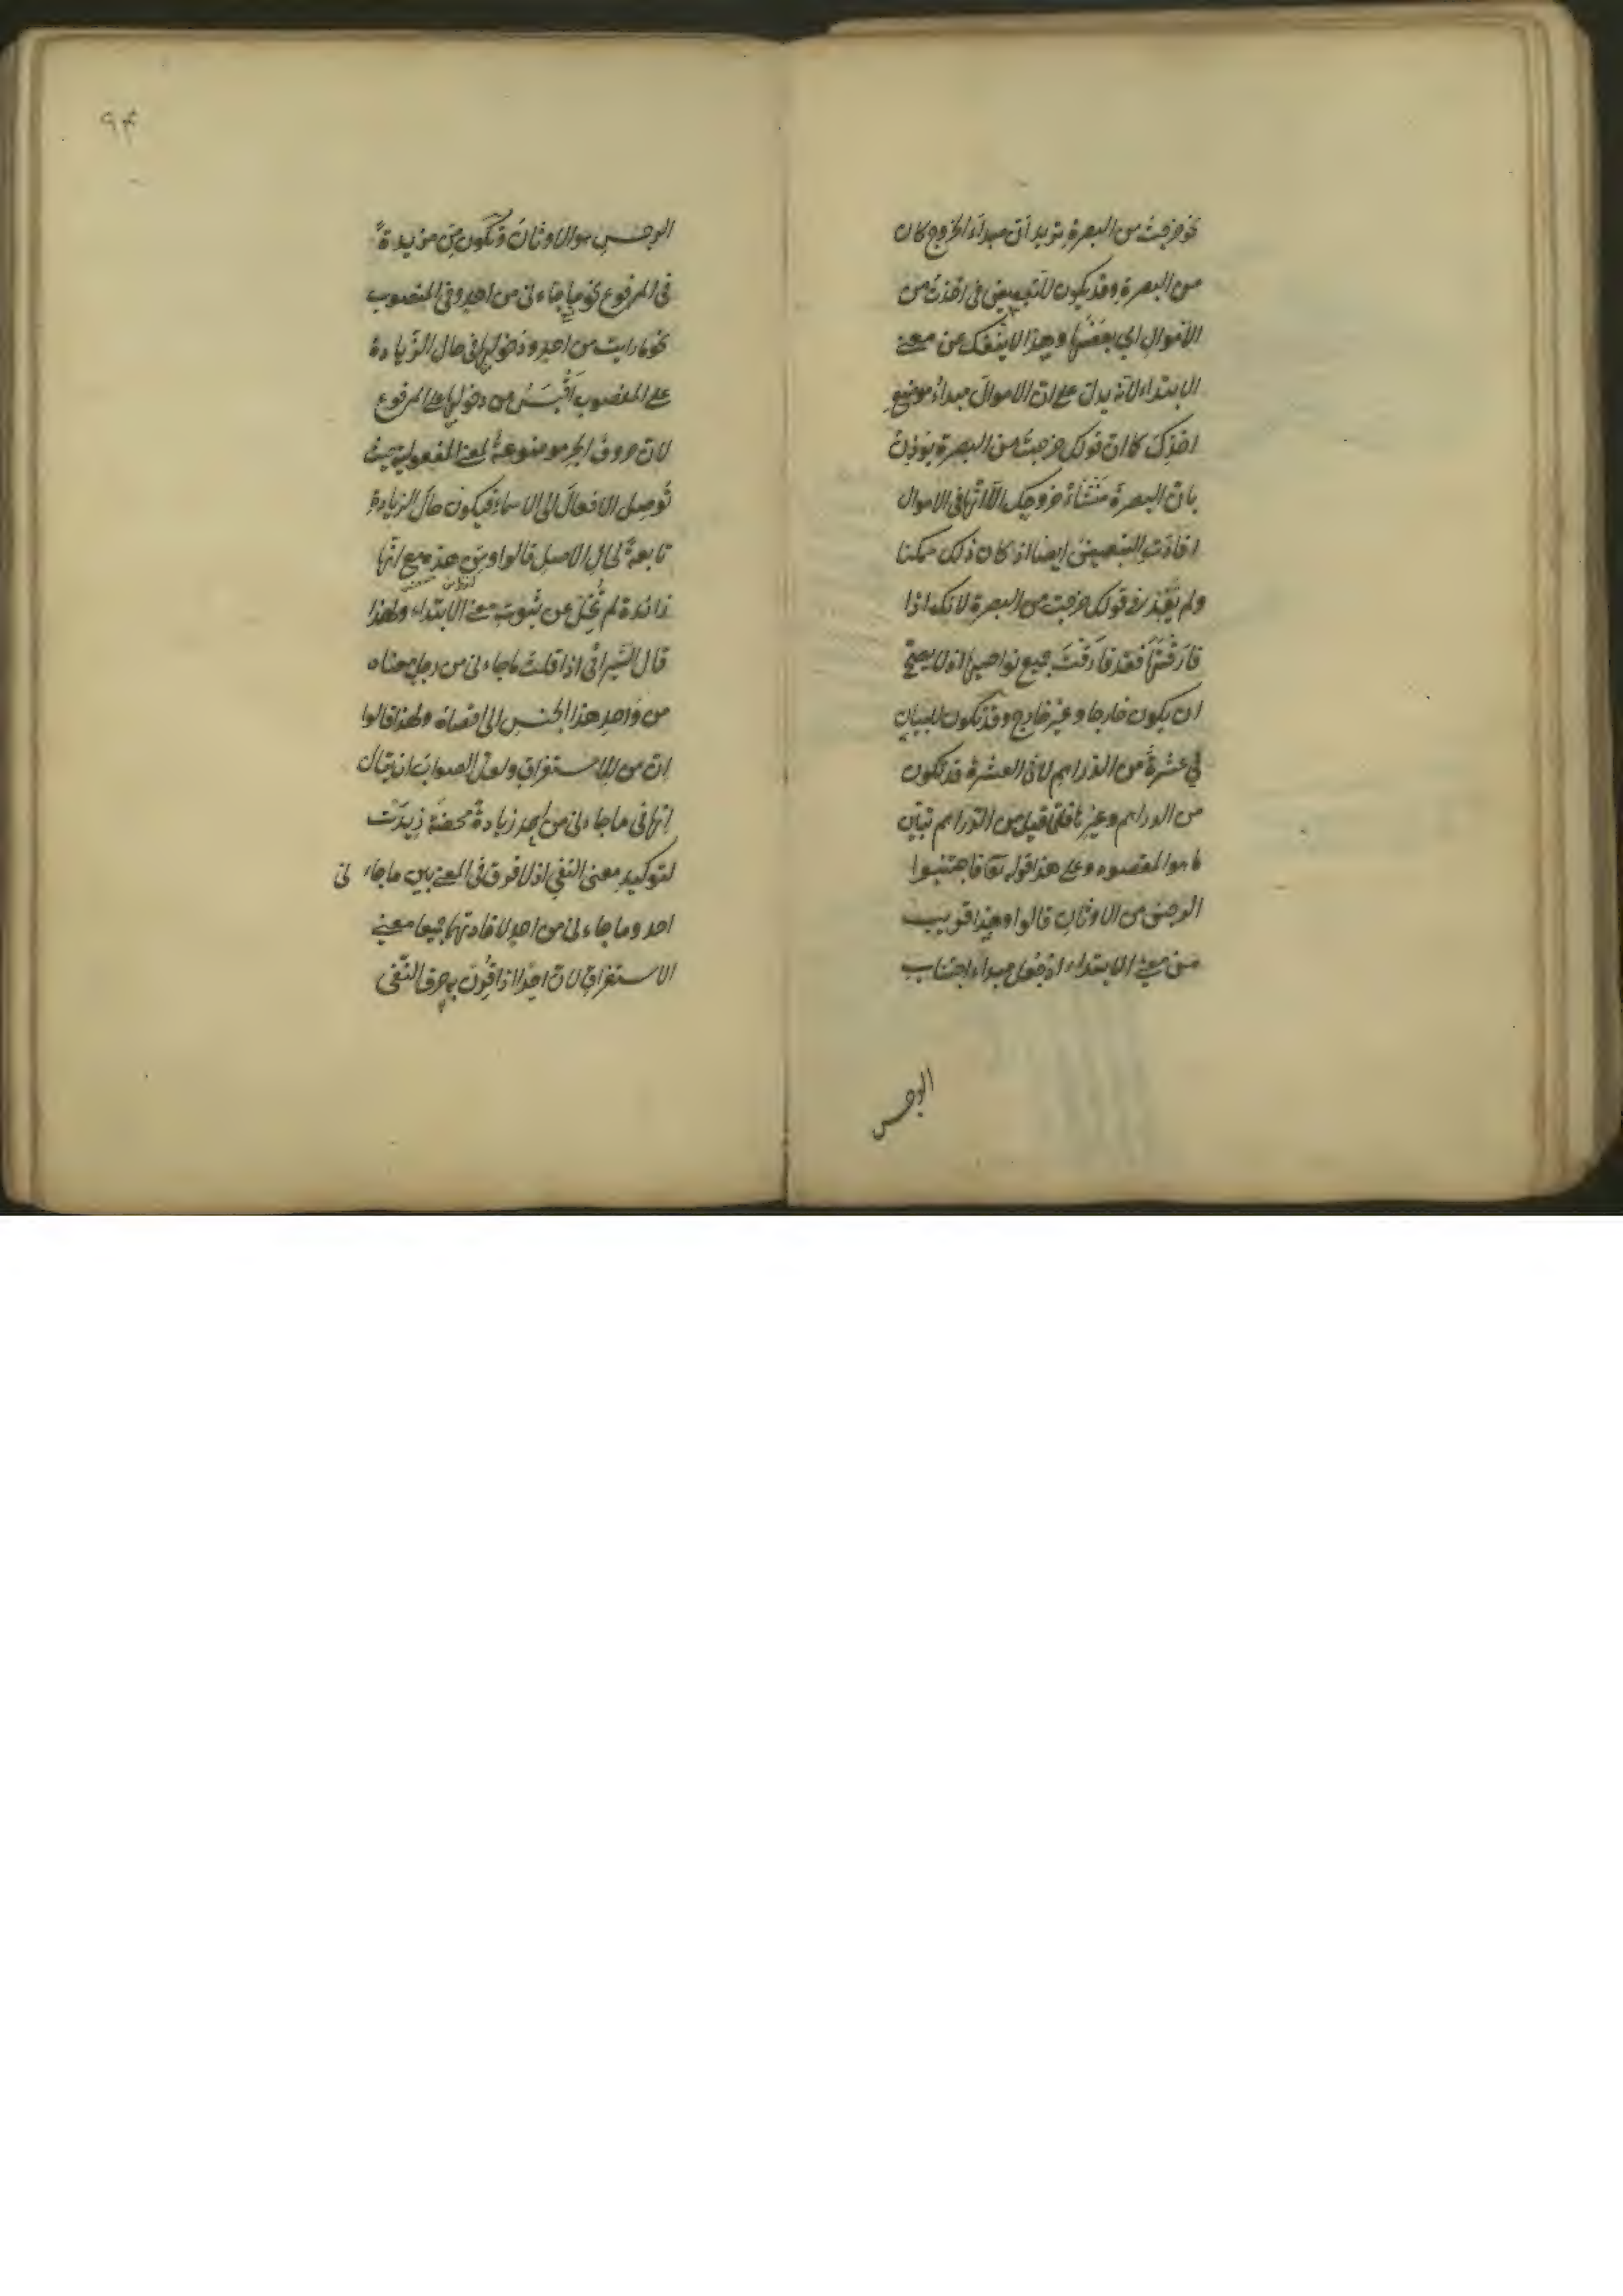 نحو خرجتُ من البصرةِ تريد انّ مبداءَ الخروج كان
من البصرةِ وقد يكون للتبعيض فى اخذتُ من
الاموالِ اى بعضَها وهذا لا ينفكّ عن معنى
الابتداء لانّه يدلّ على انّ الاموالَ مبداءُ موضعِ
اخذِكَ كما ان قولك خرجتُ من البصرةِ يؤذِنُ
بانّ البصرةَ مَنْشَاءُ خروجِك الّا انّها فى الاموال
افادَتِ التبعيضَ ايضا اذ كان ذلك ممكنا
ولم تُفِدْ فى قولك خرجت من البصرة لانك اذا
فارقْتَها فقد فارقْتَ جميع نواحيها اذ لا يصحّ
ان يكون خارجا وغيرَ خارج وقد تكون للبيانِ
فى عشرةٌ من الدّراهمِ لانّ العشرةَ قد تكون
من الدراهم وغيرِها فلمّا قيل من الدّراهم تبيّن
ما هو المقصود وعلى هذا قوله تعالى فاجتنبوا
الرجسَ من الاوثانِ قالوا وهذا قريب
من معنى الابتداء اذ جُعل مبداءُ اجتناب
الرجس
٩٣
الرجسِ هو الاوثانَ وتكون مِن مزيدةً
فى المرفوع نحو ما جاءنى من احدٍ وفى المنصوب
نحو ما رايت من احدٍ ودخولها فى حال الزّيادة
على المنصوب اَقْيَسُ من دخولها على المرفوع
لانّ حروفَ الجرّ موضوعةٌ لمعنى المفعولية حيث
تُوصِل الافعالَ الى الاسماءِ فيكون حالُ الزيادةِ
تابعةً لحالِ الاصلِ قالوا ومِن هذه مع انّها
زائدة لم تَخْلُ عن ثبوتِ معنى الابتداء ولهذا
قال السّيرافىّ اذا قلتَ ما جاءنى من رجلٍ معناه
من واحدِ هذا الجنسِ الى اقصاهُ ولهذا قالوا
انّ من للاستغراقِ ولعلّ الصوابَ ان يقال
انّها فى ما جاءنى من احدٍ زيادةٌ محضةٌ زِيدَتْ
لتوكيدِ معنى النّفىِ اذ لا فرقَ فى المعنى بين ما جاءنى
احد وما جاءنى من احدٍ لافادتهما جميعا معنى
الاستغراقِ لانّ احدًا اذا قُرِن به حرف النّفى